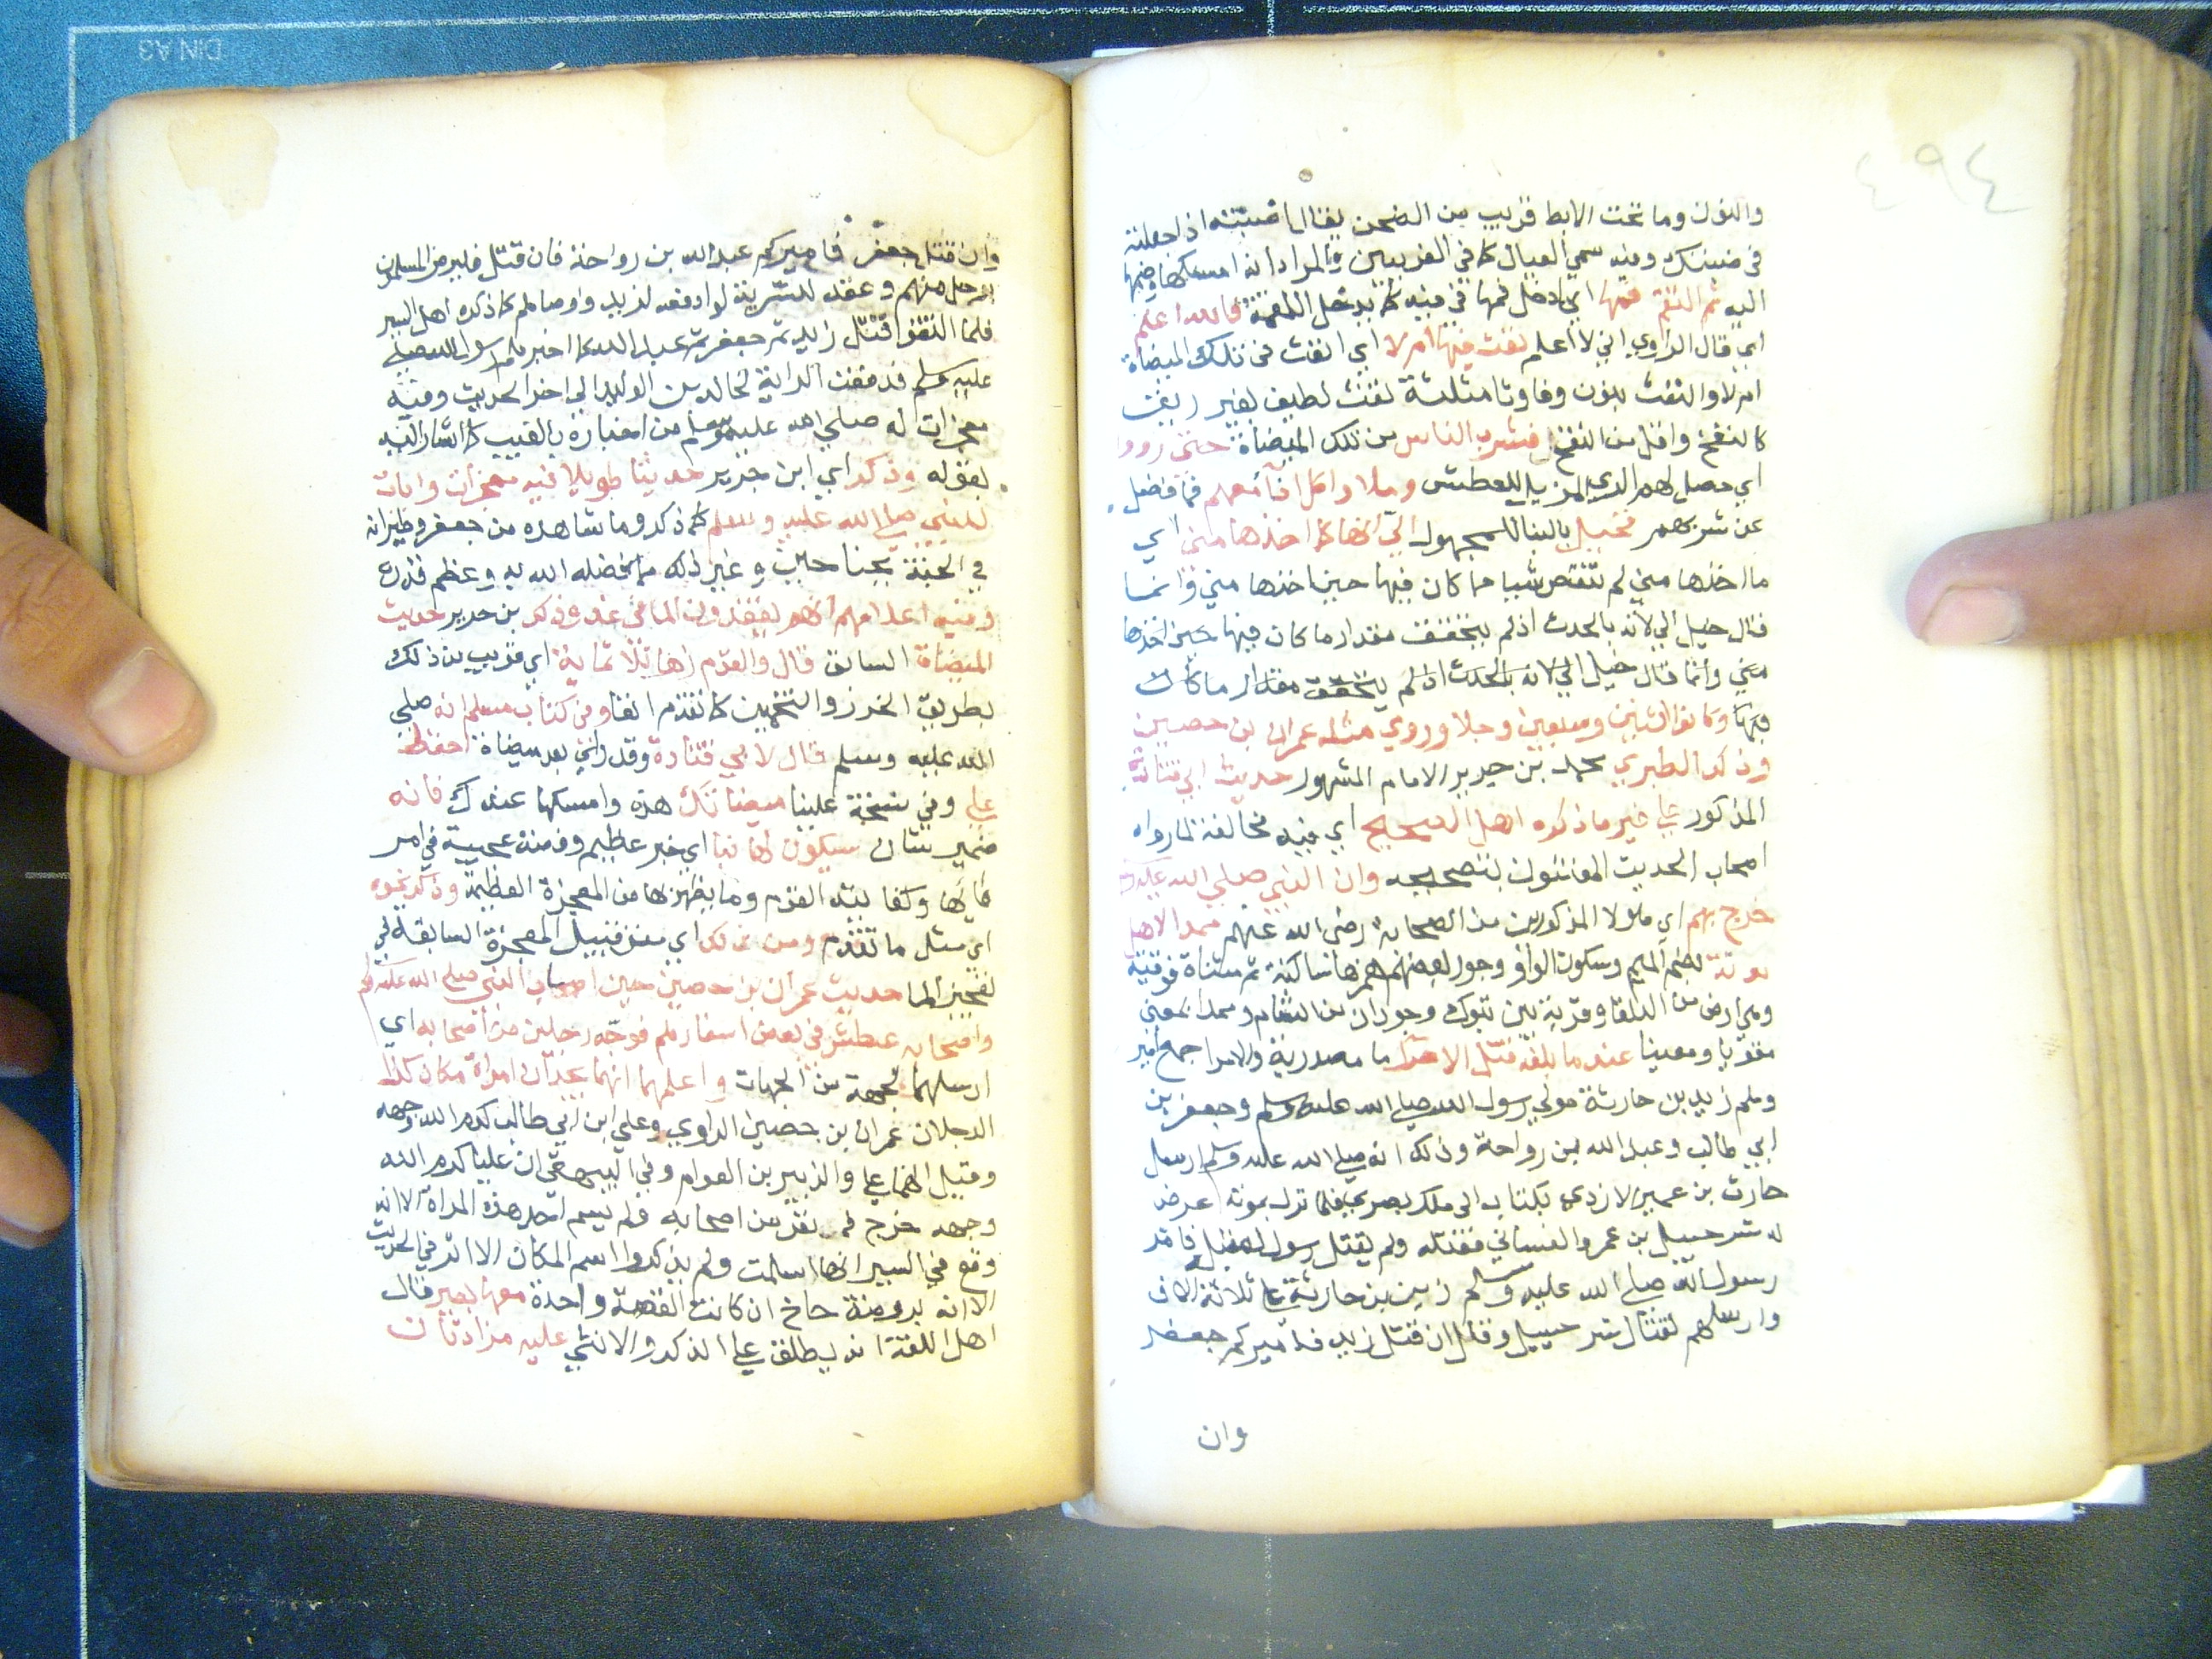 ٤٩٤
والنون وما تحت الابط قريب من الضحن يقال اضبنته اذا جعلته
في ضبنك ومنه سمي العيال كما في الغريبين والمراد انه امسكها وضمها
اليه ثم التقم فمها اي ادخل فمها في فيه كما يدخل اللقمة فالله اعلم
اي قال الراوي اني لا اعلم نفث فيها ام لا اي انفث في تلك الميضاة
ام لا والنفث بنون وفا وثا مثلثة نفث لطيف بغير ريق
كالنفخ واقل من النفخ فشرب الناس من تلك الميضاة حتى رووا
اي حصل لهم الري المزيل للعطش وملاوا كل انآ معهم مما فضل
عن شربهم فخيل بالبنا للمجهول الي انها كما اخذها مني اي
ما اخذها مني لم تنقص شيا مما كان فيها حين اخذها مني وانما
قال خيل الي لانه بالحدث اذ لم يتحقق مقدار ما كان فيها حين اخذها
مني وانما قال خيل الي لانه بالحدث اذ لم يتحقق مقدار ما كان
فيها وكانوا اثنين وسبعين رجلا وروي مثله عمران بن حصين
وذكر الطبري محمد بن جرير الامام المشهور حديث ابي قتادة
المذكور علي غير ما ذكره اهل الصحيح اي فيه مخالفة لما رواه
اصحاب الحديث المعتنون بتصحيحه وان النبي صلي الله عليه وسلم
خرج بهم اي هولا المذكورين من الصحابة رضي الله عنهم ممدا لاهل
موتة بضم الميم وسكون الواو وجوز بعضهم همزها ساكنة ثم مثناة فوقية
وهي ارض من البلقا وقرية بين تبوك وحوران من الشام وممدا بمعني
مقويا ومعينا عند ما بلغه قتل الامرا ما مصدرية والامرا جمع امير
وهم زيد بن حارثة مولي رسول الله صلي الله عليه وسلم وجعفر بن
ابي طالب وعبد الله بن رواحة وذلك انه صلي الله عليه وسلم ارسل
حارث بن عمير الازدي بكتاب الي ملك بصري فلما نزل بموتة عرض
له شرحبيل بن عمرو الغساني فقتله ولم يقتل رسول له قبل فامر
رسول الله صلي الله عليه وسلم زيد بن حارثة علي ثلاثة الاف
وارسلهم لقتال شرحبيل وقال ان قتل زيد فاميركم جعفر
وان
وان قتل جعفر فاميركم عبد الله بن رواحة فان قتل فليرض المسلمون
برجل منهم وعقد للسرية لوا دفعه لزيد واوصاهم كما ذكره اهل السير
فلما التقوا قتل زيد ثم جعفر ثم عبد الله كما اخبر به رسول الله صلي
عليه وسلم فدفعت الراية لخالد بن الوليد الي اخر الحديث وفيه
معجزات له صلي الله عليه وسلم من اخباره بالغيب كما اشار اليه
بقوله وذكر اي ابن جرير حديثا طويلا فيه معجزات وايات
للنبي صلي الله عليه وسلم كما ذكر وما شاهده من جعفر وطيرانه
في الجنة بجناحين وغير ذلك مما فضله الله به وعظم قدره
وفيه اعلامهم انهم يفقدون الما في غد وذكر بن جرير حديث
الميضاة السابق قال والقوم زها ثلاثماية اي قريب من ذلك
بطريق الحرز والتخمين كما تقدم انفا وفي كتاب مسلم انه صلي
الله عليه وسلم قال لابي قتادة وقد راتي بعد ميضاة احفظ
علي وفي نسخة علينا ميضاتك هذه وامسكها عندك فانه
ضمير شان سيكون لها نبا اي خبر عظيم وقصة عجيبة في امر
مايها وكفايته القوم وما يظهر لها من المعجزة العظيمة وذكر نحوه
اي مثل ما تقدم ومن ذلك اي من قبيل المعجزة السابقة في
تفجير الما حديث عمران بن حصين حين اصاب النبي صلي الله عليه وسلم
واصحابه عطش في بعض اسفارهم فوجه رجلين من اصحابه اي
ارسلهما لجهة من الجهات واعلمهما انهما يجدان امراة مكان كذا
الرجلان عمران بن حصين الراوي وعلي ابن ابي طالب كرم الله وجهه
وقيل انهما علي والزبير بن العوام وفي البيهقي ان عليا كرم الله
وجهه خرج في نفر من اصحابه ولم يسم احد هذه المراة الا انه
وقع في السير انها اسلمت ولم يذكروا اسم المكان الا انه في الحديث
الا انه بروضة خاخ ان كانت القصة واحدة معها بعير قال
اهل اللغة انه يطلق علي الذكر والانثي عليه مزادتان